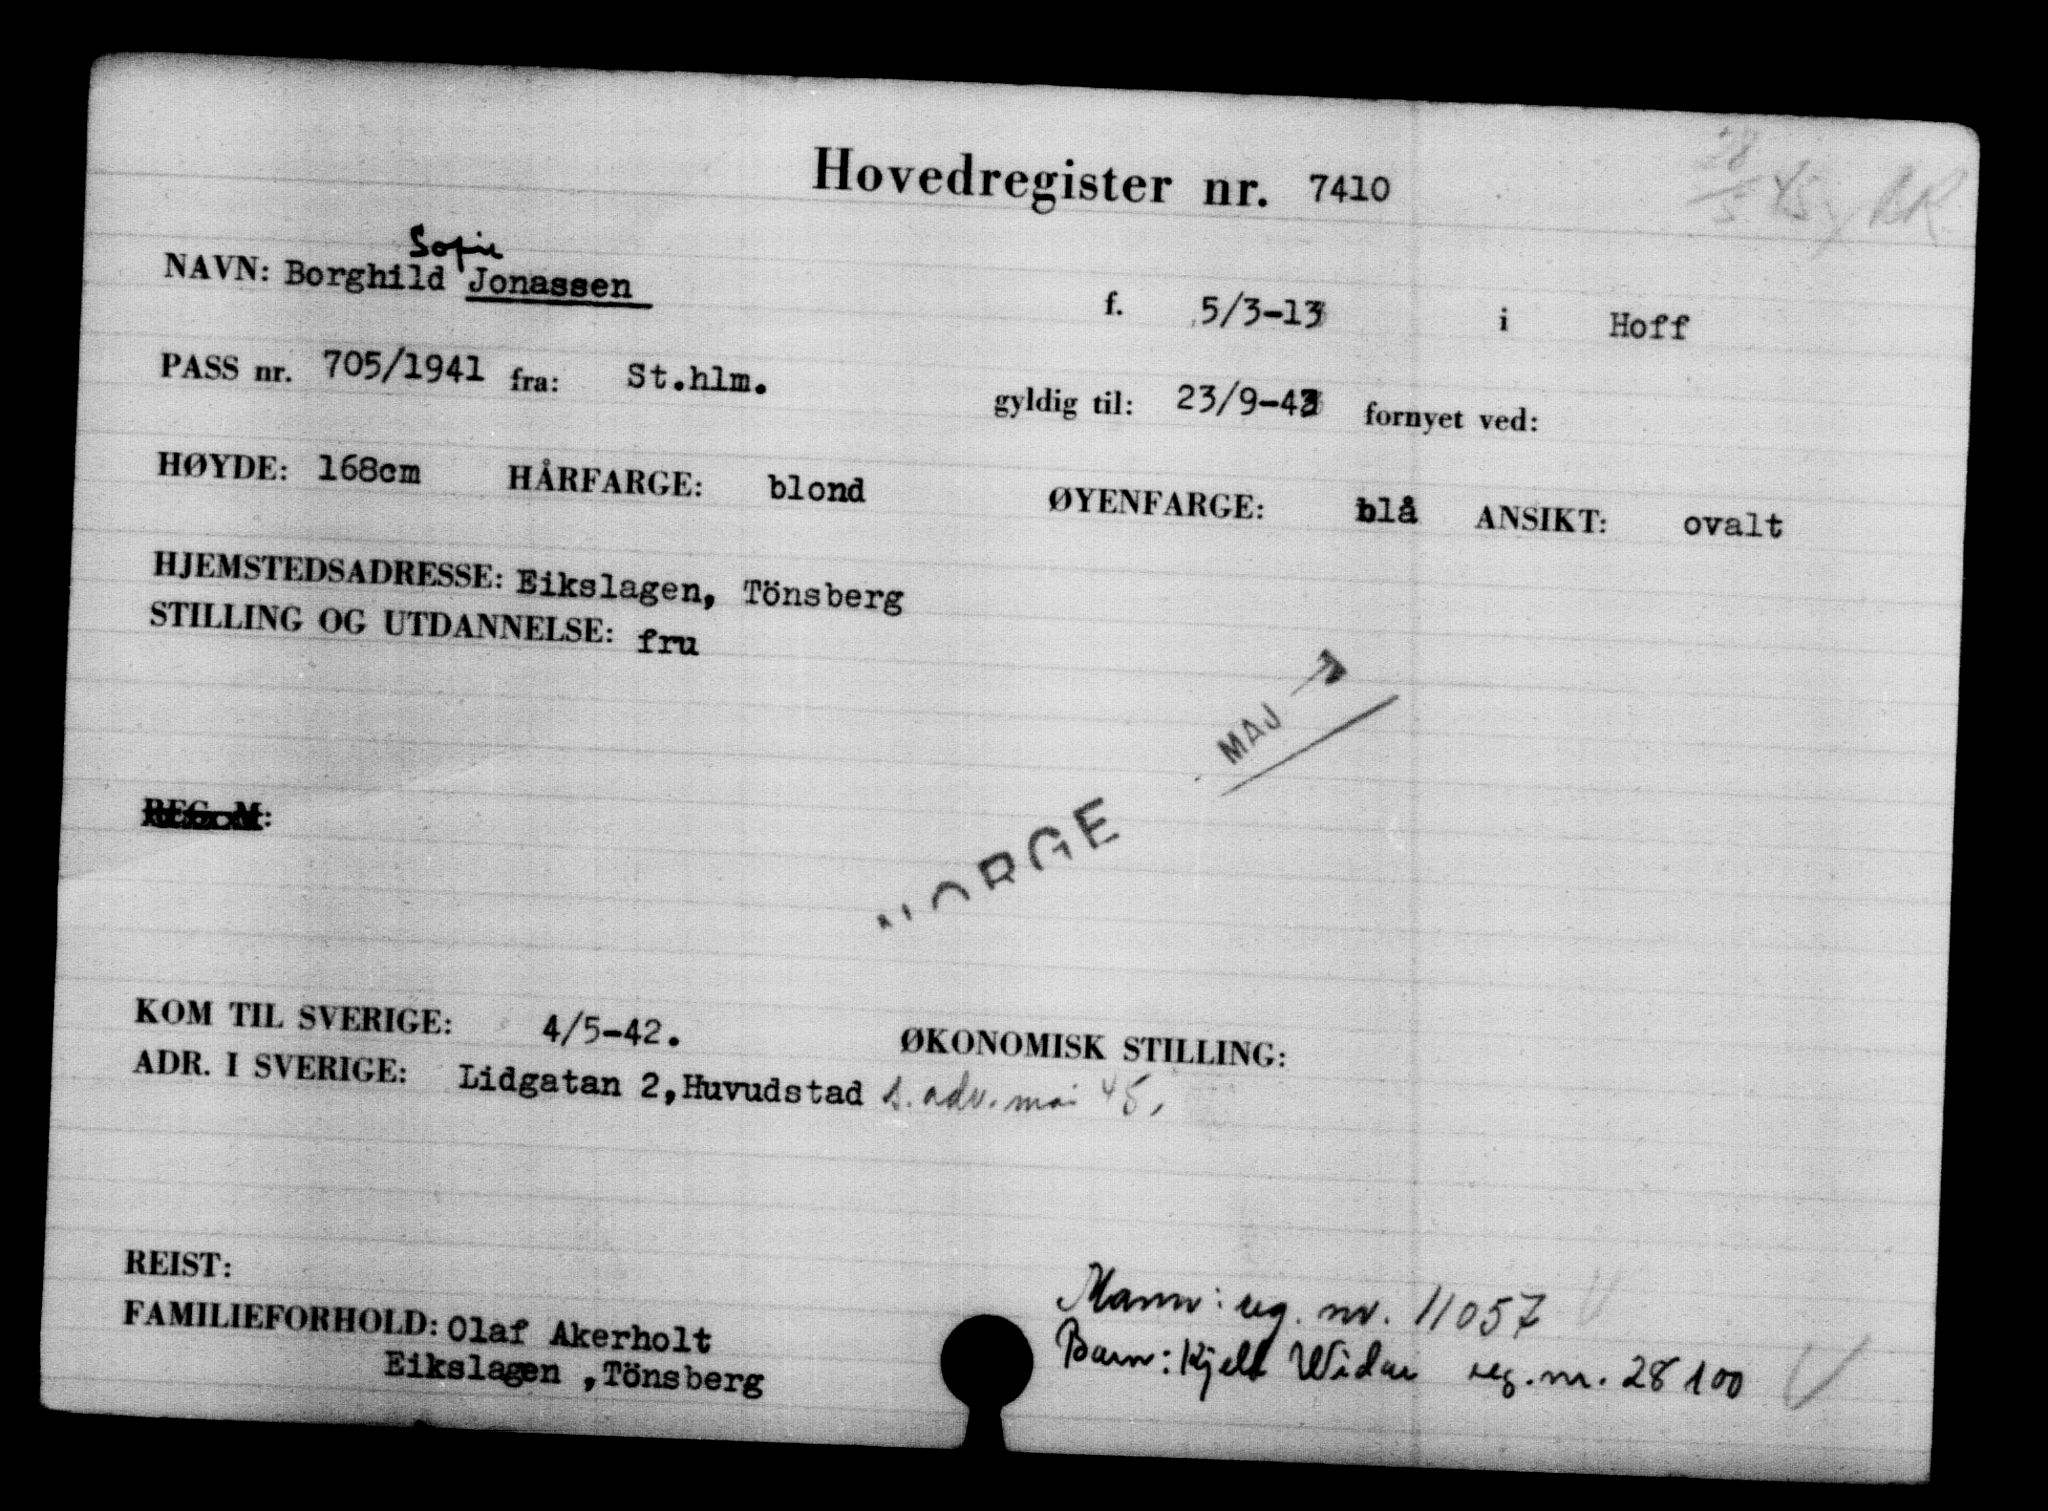 Hovedregister nr. 7410
28/5 45 BR
Sofie
NAVN: Borghild Jonassen f. 5/3-13 i Hoff
PASS nr. 705/1941 fra: St.hlm. gyldig til: 23/9-43 fornyet ved:
HØYDE: 168cm HÅRFARGE: blond ØYENFARGE: blå ANSIKT: ovalt
HJEMSTEDSADRESSE: Eikslagen, Tönsberg
STILLING OG UTDANNELSE: fru
MAJ
REG. M:
NORGE
KOM TIL SVERIGE: 4/5-42. ØKONOMISK STILLING:
ADR. I SVERIGE: Lidgatan 2,Huvudstad s. adv. mai 45.
REIST:
FAMILIEFORHOLD: Olaf Akerholt
Eikslagen ,Tönsberg
Mann: reg. nr. 11057
Barn: Kjell Widar reg. nr. 28100